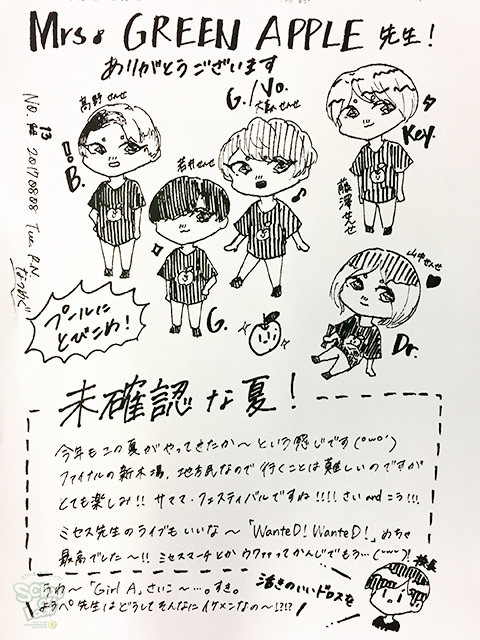 Mrs. GREEN APPLE 先生！
ありがとうございます
No. 13 2017.08.08 Tue. P.N. なつめぐ
髙野せんせ
B.
若井せんせ
G.
G./Vo.
大森せんせ
Key.
藤澤せんせ
山中せんせ
Dr.
プールに
とびこめ！
未確認な夏！
今年もこの夏がやってきたか〜という感じです(°ω°)
ファイナルの新木場、地方民なので行くことは難しいのですが
とても楽しみ!! サママ・フェスティバルですね!!!! さい and こう!!!
ミセス先生のライブもいいな〜「WanteD! WanteD!」めちゃ
最高でした〜!! ミセスマーチとかウワァァってかんじでもう…
うわ〜「Girl A」さいこ〜…。すき。
ようぺ先生はどうしてそんなにイケメンなの〜!?!?
校長
活きのいいドロスを